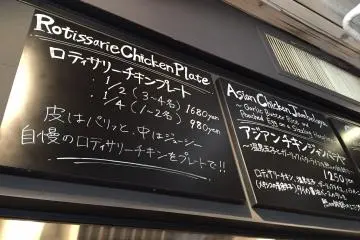 Rotisserie Chicken Plate
ロティサリーチキンプレート
: 1/2 (3~4名) 1680yen
: 1/4 (1~2名) 980yen
皮はパリッと、中はジューシー
自慢のロティサリーチキンをプレートで!!
Asian Chicken Jambalaya
~ Garlic Butter Rice and
Poached Egg on a Sizzling
アジアンチキンジャンバラヤ
1250yen
ロティサリーチキン、温泉玉子